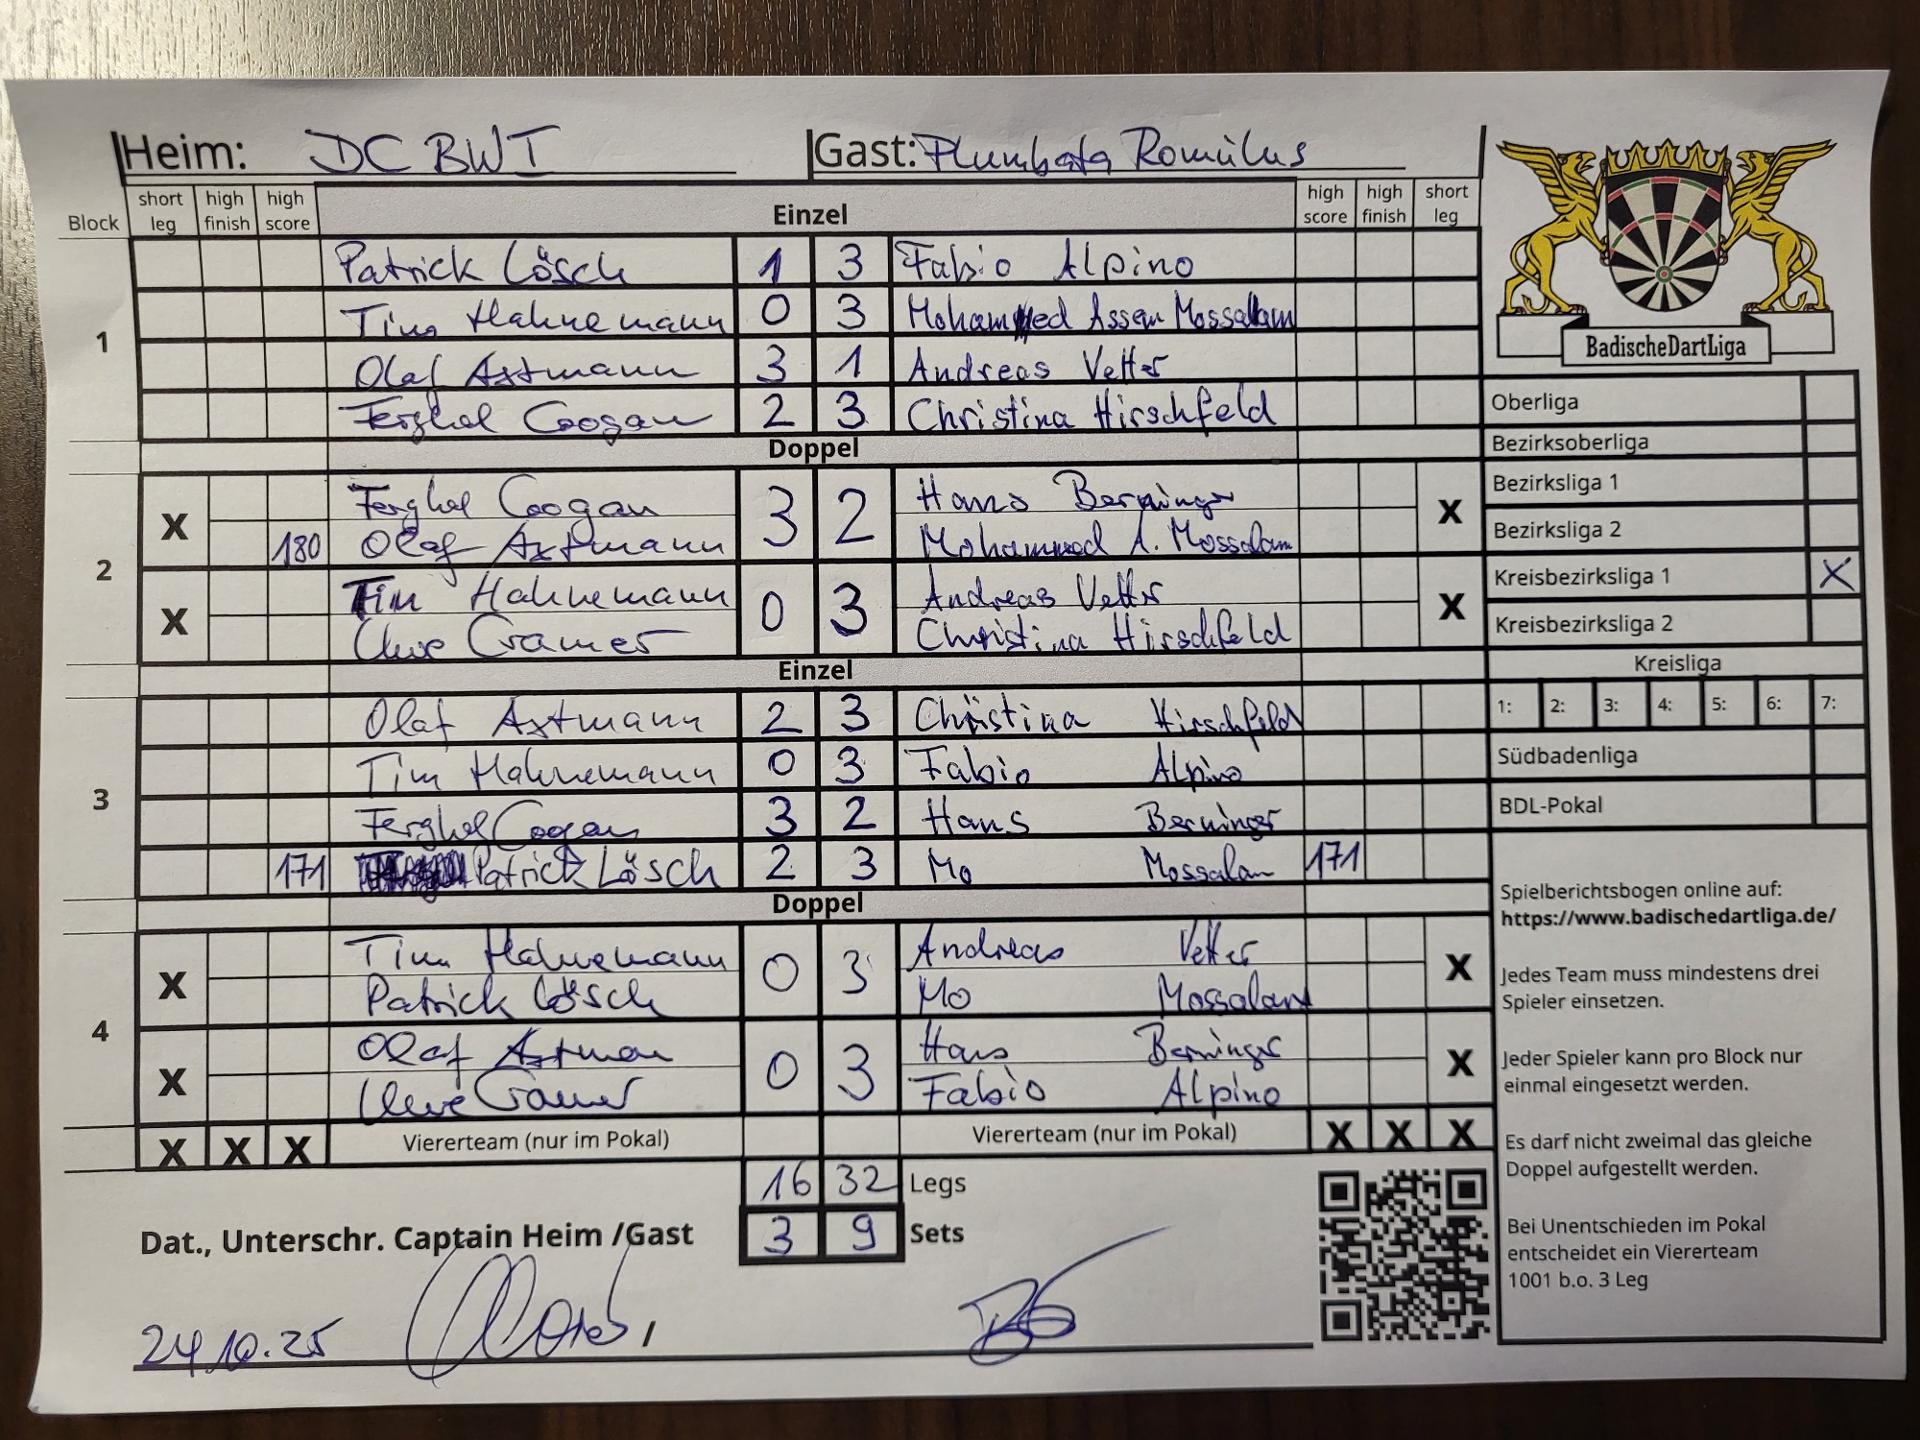 Heim: DC BWT Gast: Plumbata Romulus
Block short leg high finish high score Einzel high score high finish short leg
1
Patrick Lösch 1 3 Fabio Alpino
Tim Hahnemann 0 3 Mohammed Assem Mossalam
Olaf Astmann 3 1 Andreas Vetter
Ferghal Coogan 2 3 Christina Hirschfeld
Doppel
2
X Ferghal Coogan 3 2 Hans Berninger X
180 Olaf Astmann Mohammed A. Mossalam
X Tim Hahnemann 0 3 Andreas Vetter X
Uwe Cramer Christina Hirschfeld
Einzel
3
Olaf Astmann 2 3 Christina Hirschfeld
Tim Hahnemann 0 3 Fabio Alpino
Ferghal Coogan 3 2 Hans Berninger
171 Patrick Lösch 2 3 Mo Mossalam 171
Doppel
4
X Tim Hahnemann 0 3 Andreas Vetter X
Patrick Lösch Mo Mossalam
X Olaf Astman 0 3 Hans Berninger X
Uwe Cramer Fabio Alpino
X X X Viererteam (nur im Pokal) Viererteam (nur im Pokal) X X X
16 32 Legs
Dat., Unterschr. Captain Heim /Gast 3 9 Sets
24.10.25 /
BadischeDartLiga
Oberliga
Bezirksoberliga
Bezirksliga 1
Bezirksliga 2
Kreisbezirksliga 1 X
Kreisbezirksliga 2
Kreisliga
1: 2: 3: 4: 5: 6: 7:
Südbadenliga
BDL-Pokal
Spielberichtsbogen online auf:
https://www.badischedartliga.de/
Jedes Team muss mindestens drei
Spieler einsetzen.
Jeder Spieler kann pro Block nur
einmal eingesetzt werden.
Es darf nicht zweimal das gleiche
Doppel aufgestellt werden.
Bei Unentschieden im Pokal
entscheidet ein Viererteam
1001 b.o. 3 Leg